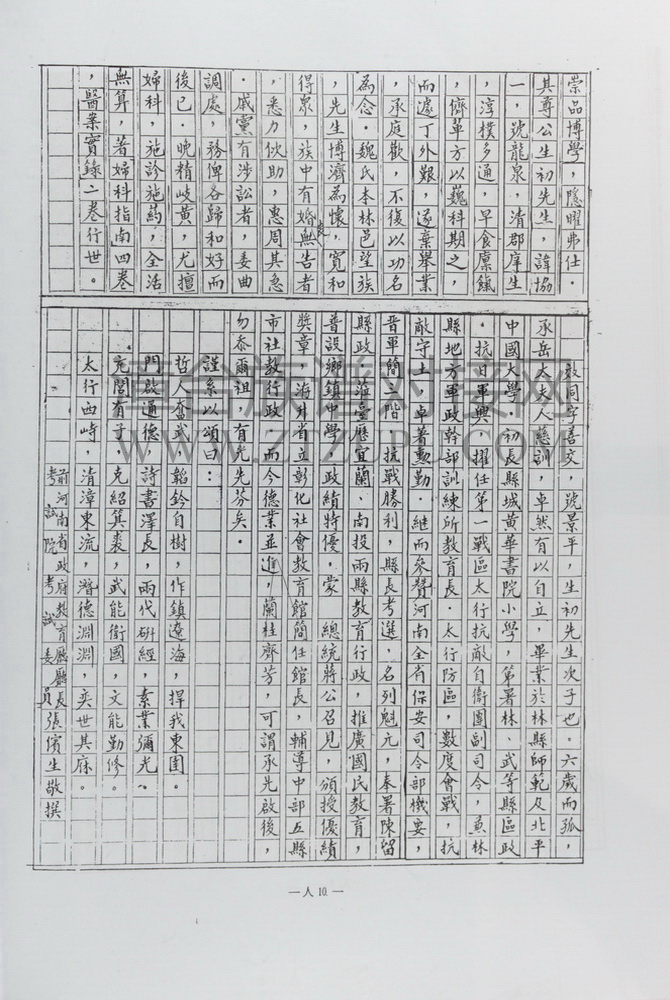 崇品博學，隱曜弗仕．
其尊公生初先生，諱協
一，號龍泉，清郡庠生
，淳樸多通，早食廩餼
，儕輩方以巍科期之，
而遽丁外艱，遂棄舉業
，承庭歡，不復以功名
為念．魏氏本林邑望族
，先生博濟為懷，寬和
得眾，族中有婚喪無告者
，悉力佽助，惠周其急
．戚黨有涉訟者，委曲
調處，務俾各歸和好而
後已．晚精岐黃，尤擅
婦科，施診施药，全活
無算，著婦科指南四卷
，醫案實錄二卷行世。
效同字善交，號景平，生初先生次子也．六歲而孤，
承岳太夫人慈訓，卓然有以自立，畢業於林縣師範及北平
中國大學．初長縣城黃華書院小學，第署林、武等縣區政
．抗日軍興，擢任第一戰區太行抗敵自衛團副司令，兼林
縣地方軍政幹部訓練所教育長．太行防區，數度會戰，抗
敵守土，卓著勳勤．繼而參贊河南全省保安司令部機要，
晉軍簡二階．抗戰勝利，縣長考選，名列魁元，奉署陳留
縣政．蒞臺歷宜蘭、南投兩縣教育行政，推廣國民教育，
普設鄉鎮中學，政績特優，蒙　總統蔣公召見，頒授優績
獎章．海外省立彰化社會教育館簡任館長，輔導中部五縣
市社教行政．而今德業並進，蘭桂齊芳，可謂承先啟後，
勿忝爾祖　有光先芬矣．
謹系以頌曰：
哲人奮武，韜鈐自樹，作鎮遼海，捍我東圉。
門啟通德，詩書澤長，兩代研經，素業彌光。
充閭有子，克紹箕裘，武能衛國，文能勤修。
太行西峙，清漳東流，潛德淵淵，奕世其庥。
前河南省政府教育廳廳長
考試院考試委員
張濱生敬撰
臺台族譜对接网
WWW.ZTZUPU.COM
—人10—